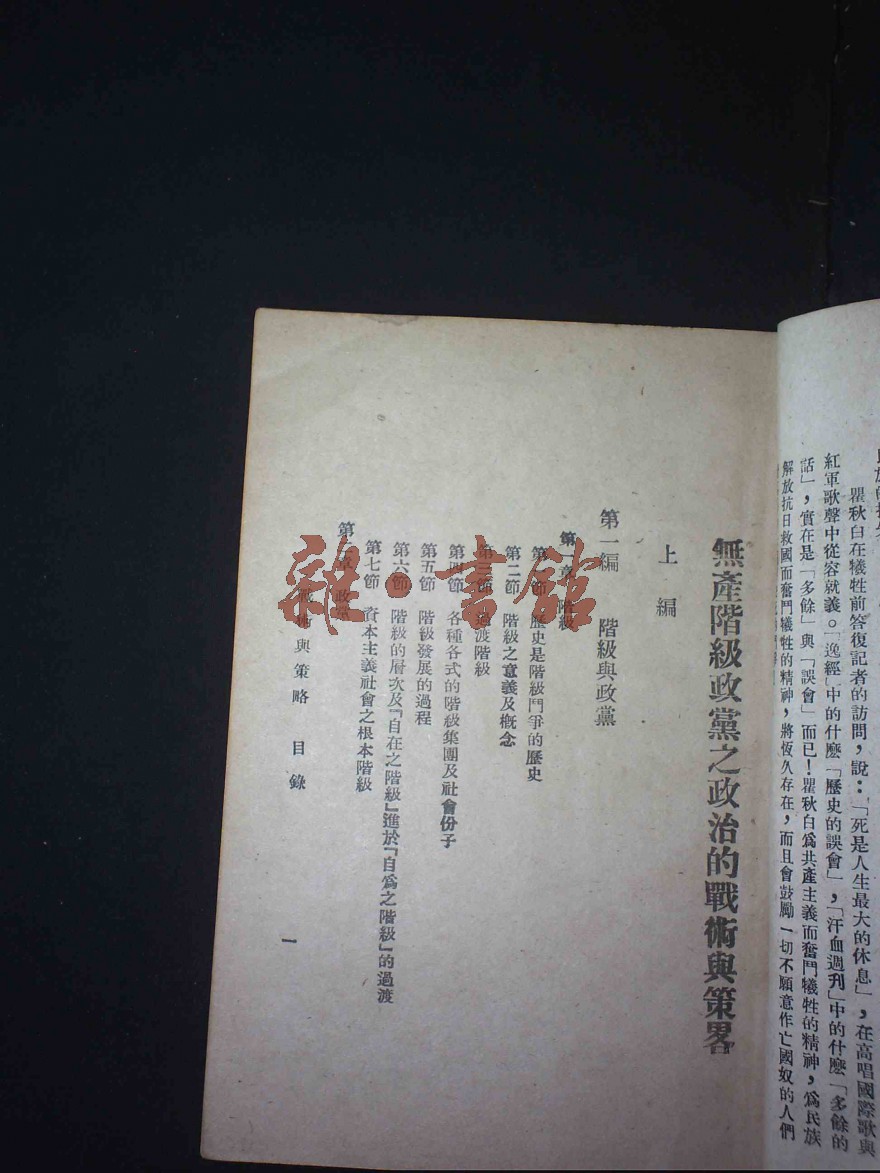 瞿秋白在犧牲前答復記者的訪問，說：「死是人生最大的休息」，在高唱國際歌與
紅軍歌聲中從容就義。「逸經」中的什麽「歷史的誤會」，「汗血週刊」中的什麽「多餘的
話」，實在是「多餘」與「誤會」而已！瞿秋白爲共產主義而奮鬥犧牲的精神，爲民族
解放抗日救國而奮鬥犧牲的精神，將恆久存在，而且會鼓勵一切不願意作亡國奴的人們
無產階級政黨之政治的戰術與策畧
上編
第一編　階級與政黨
第一章　階級
第一節　歷史是階級鬥爭的歷史
第二節　階級之意義及槪念
第三節　過渡階級
第四節　各種各式的階級集團及社會份子
第五節　階級發展的過程
第六節　階級的層次及『自在之階級』進於『自爲之階級』的過渡
第七節　資本主義社會之根本階級
第二章　政黨
戰術與策略　目錄
一
雜·書館